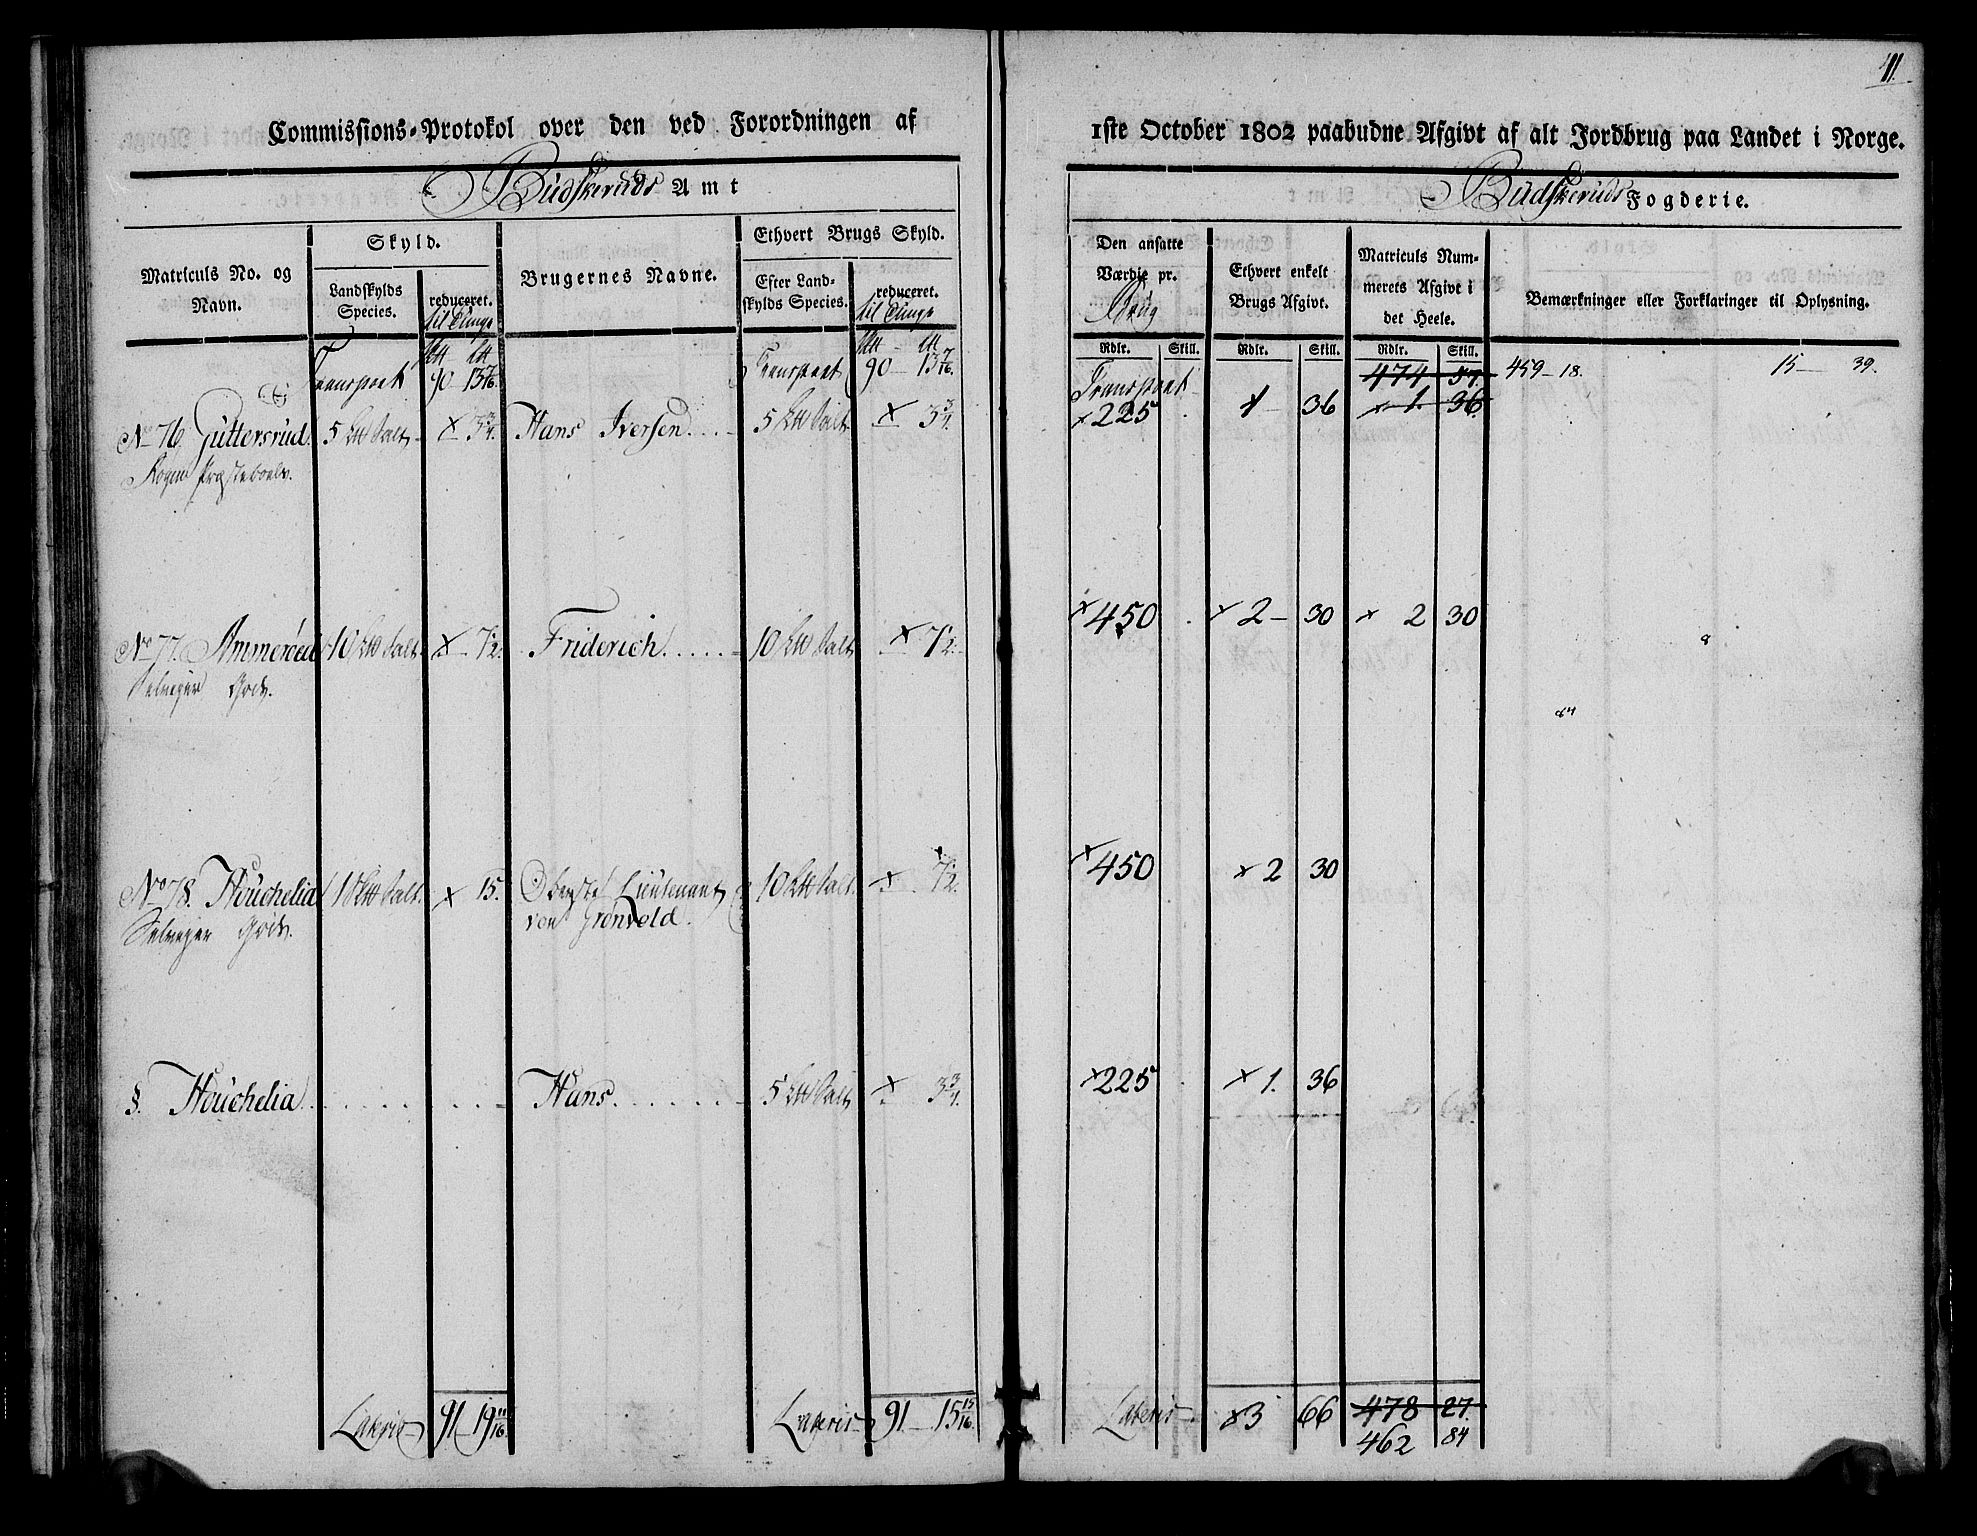 11.
Commissions-Protokol over den ved Forordningen af 1ste October 1802 paabudne Afgivt af alt Jordbrug paa Landet i Norge.
Budskeruds Amt
Budskeruds Fogderie.
Matriculs No. og Navn.
Skyld.
Landskylds Species.
reduceret.
til Tunge
Brugernes Navne.
Ethvert Brugs Skyld.
Efter Landskylds Species.
reduceret.
til Tunge
Den ansatte Værdie pr. Brug
Rdlr. Skill.
Ethvert enkelt Brugs Afgivt.
Rdlr. Skill.
Matriculs Nummerets Afgivt i det Heele.
Rdlr. Skill.
Bemærkninger eller Forklaringer til Oplysning.
Transport 90 13 7/16. Transport 90 13 7/16. Transport 474 57. 459 - 18. 15 - 39.
No 76. Guttersrud 5 Salt x 3 3/4. Hans Iversen 5 Salt x 3 3/4. x 225 1 - 36 1. 36.
Præsteboels.
No 77. Ammeröed 10 Salt x 7 1/2. Friderich 10 Salt x 7 1/2. x 450 x 2 - 30 x 2 30
Selveger Gods.
No 78. Houchelia Salt. x 15. Oberste Lieutenant 10 Salt. x 7 1/2. x 450 x 2 30
Selveger Gods. von Grönvold.
§. Houchelia Hans 5 Salt x 3 3/4. x 225 x 1. 36
Lateris 91 - 19 11/16. Lateris 91 - 15 15/16. Lateris x3 66 478 27.
462 84